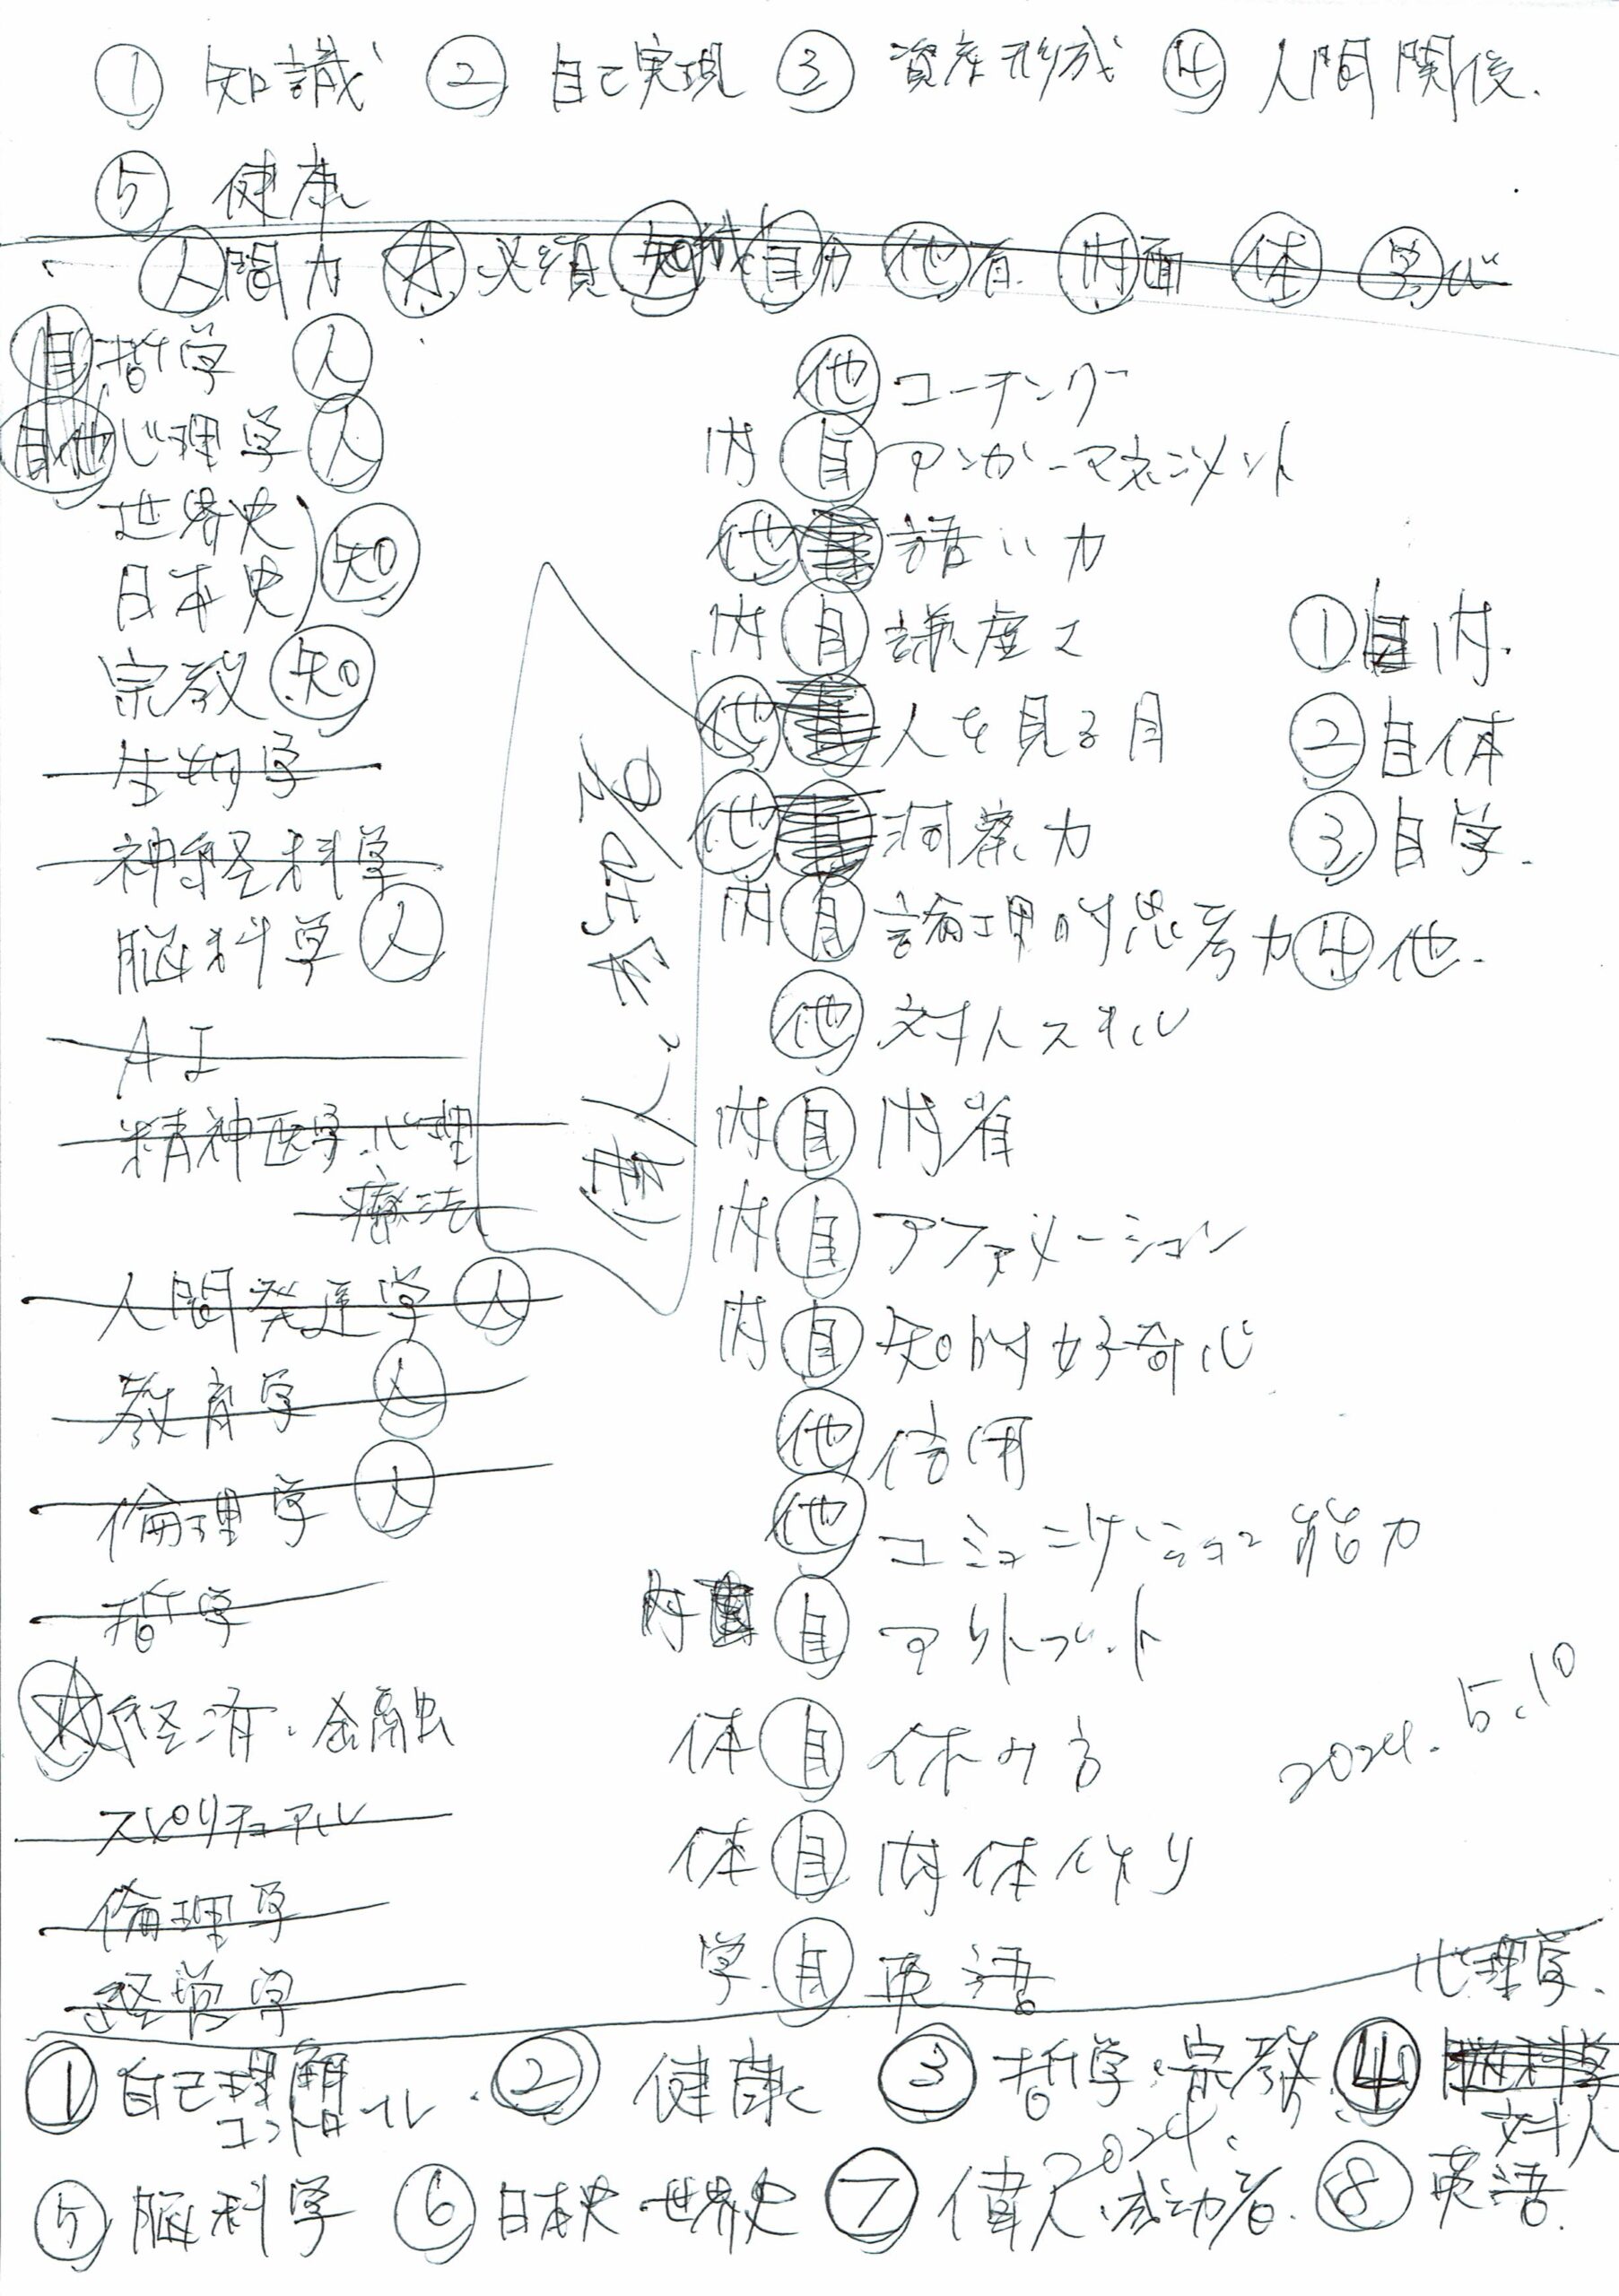 ① 知識 ② 自己実現 ③ 資産形成 ④ 人間関後.
⑤ 健康
人間力 ☆ 必須 知識 自分 他者 内面 体 学び
自 哲学 人
自他 心理学 人
世界史
日本史 知
宗教 知
生物学
神経科学
脳科学 人
AI
精神医学・心理
療法
人間発達学 人
教育学 人
倫理学 人
哲学
☆ 経済・金融
スピリチュアル
倫理学
経営学
偉人、成功者
他 コーチング
内 自 アンガーマネジメント
他 語い力
内 自 謙虚さ
他 人を見る目
他 洞察力
内 自 論理的思考力
他 対人スキル
内 自 内省
内 自 アファメーション
内 自 知的好奇心
他 信用
他 コミュニケーション能力
内 自 アウトプット
体 自 休み方
体 自 肉体作り
学 自 英語
① 自内.
② 自体
③ 自学.
④ 他.
2024.5.10
心理学.
① 自己理解 ② 健康 ③ 哲学・宗教 ④ 脳科学
コントロール 対人
2024.
⑤ 脳科学 ⑥ 日本史・世界史 ⑦ 偉人・成功者. ⑧ 英語.